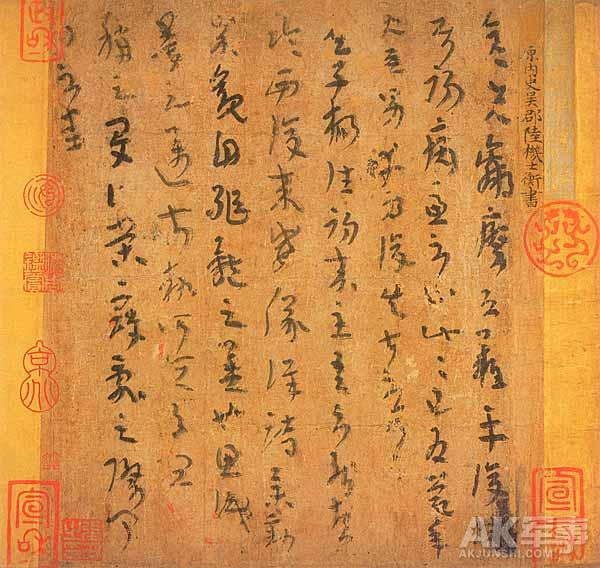 原內史吳郡陸機士衡書
彥先羸瘵恐難平復
往屬初病慮不止此此已為慶承
使唯男幸為復失前憂耳
吳子楊往初來主吾不能盡
臨西復來威儀詳跱舉動
成觀自軀體之美也思識
量之邁前執所恒有宜
稱之夏伯榮寇亂之際聞
問不悉
宣和
宣和
AK军事
AKJUNSHI.COM